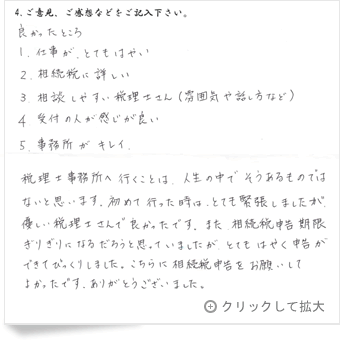 4.ご意見、ご感想などをご記入下さい。
良かったところ
1. 仕事が、とてもはやい
2. 相続税に詳しい
3. 相談しやすい税理士さん(雰囲気や話し方など)
4 受付の人が感じが良い
5. 事務所がキレイ.
税理士事務所へ行くことは、人生の中でそうあるものでは
ないと思います。初めて行った時は、とても緊張しましたが、
優しい税理士さんで良かったです。また、相続税申告期限
ぎりぎりになるだろうと思っていましたが、とてもはやく申告が
できてびっくりしました。こちらに相続税申告をお願いして
よかったです。ありがとうございました。
クリックして拡大